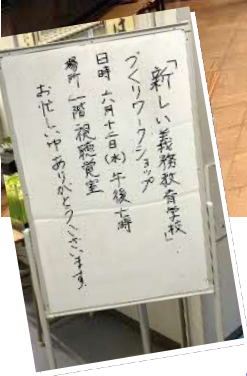 「新しい義務教育学校」
づくりワークショップ
日時 六月十二日(水)午後七時
場所 一階 視聴覚室
お忙しい中ありがとうございます。